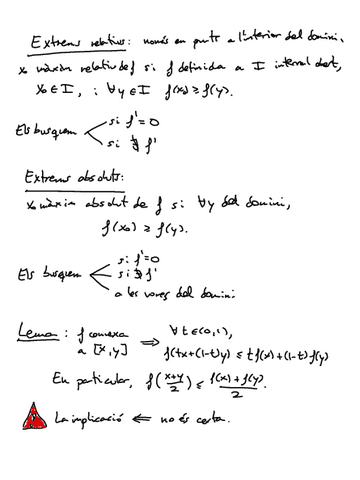 Extrems relatius: només en punts a l'interior del domini.
x₀ màxim relatiu de f si f definida a I interval obert,
x₀ ∈ I, i ∀y ∈ I f(x₀) ≥ f(y).
Els busquem
si f' = 0
si ∄ f'
Extrems absoluts:
x₀ màxim absolut de f si ∀y del domini,
f(x₀) ≥ f(y).
Els busquem
si f' = 0
si ∄ f'
a les vores del domini
Lema: f convexa a [x,y] ⟹ ∀ t ∈ (0,1),
f(tx+(1-t)y) ≤ t f(x)+(1-t) f(y)
En particular, f((x+y)/2) ≤ (f(x)+f(y))/2.
La implicació ⟸ no és certa.